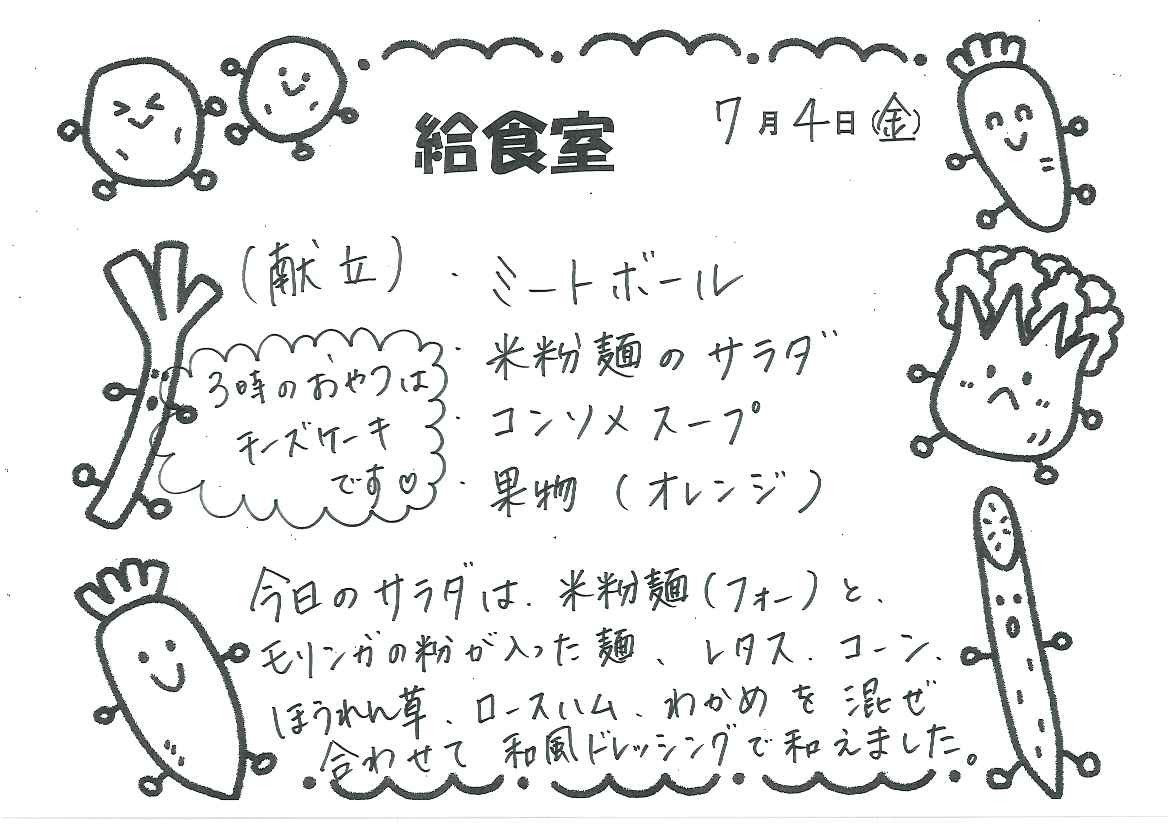 給食室
7月4日(金)
(献立)
・ミートボール
・米粉麺のサラダ
・コンソメスープ
・果物(オレンジ)
3時のおやつは
チーズケーキ
です♡
今日のサラダは、米粉麺(フォー)と、
モリンガの粉が入った麺、レタス、コーン、
ほうれん草、ロースハム、わかめを混ぜ
合わせて和風ドレッシングで和えました。